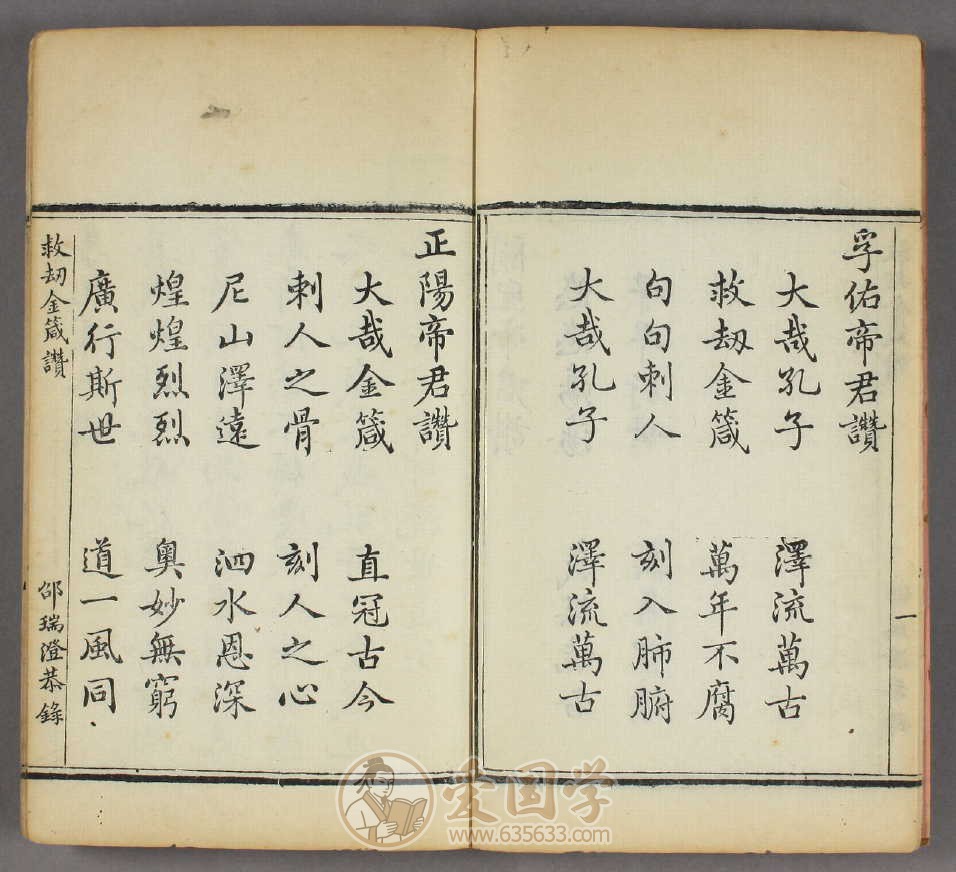 孚佑帝君讚
大哉孔子　澤流萬古
救刼金箴　萬年不腐
句句刺人　刻入肺腑
大哉孔子　澤流萬古
一
正陽帝君讚
大哉金箴　直冠古今
刺人之骨　刻人之心
尼山澤遠　泗水恩深
煌煌烈烈　奥妙無窮
廣行斯世　道一風同
救刼金箴讚　邵瑞澄恭錄
爱国学
www.635633.com